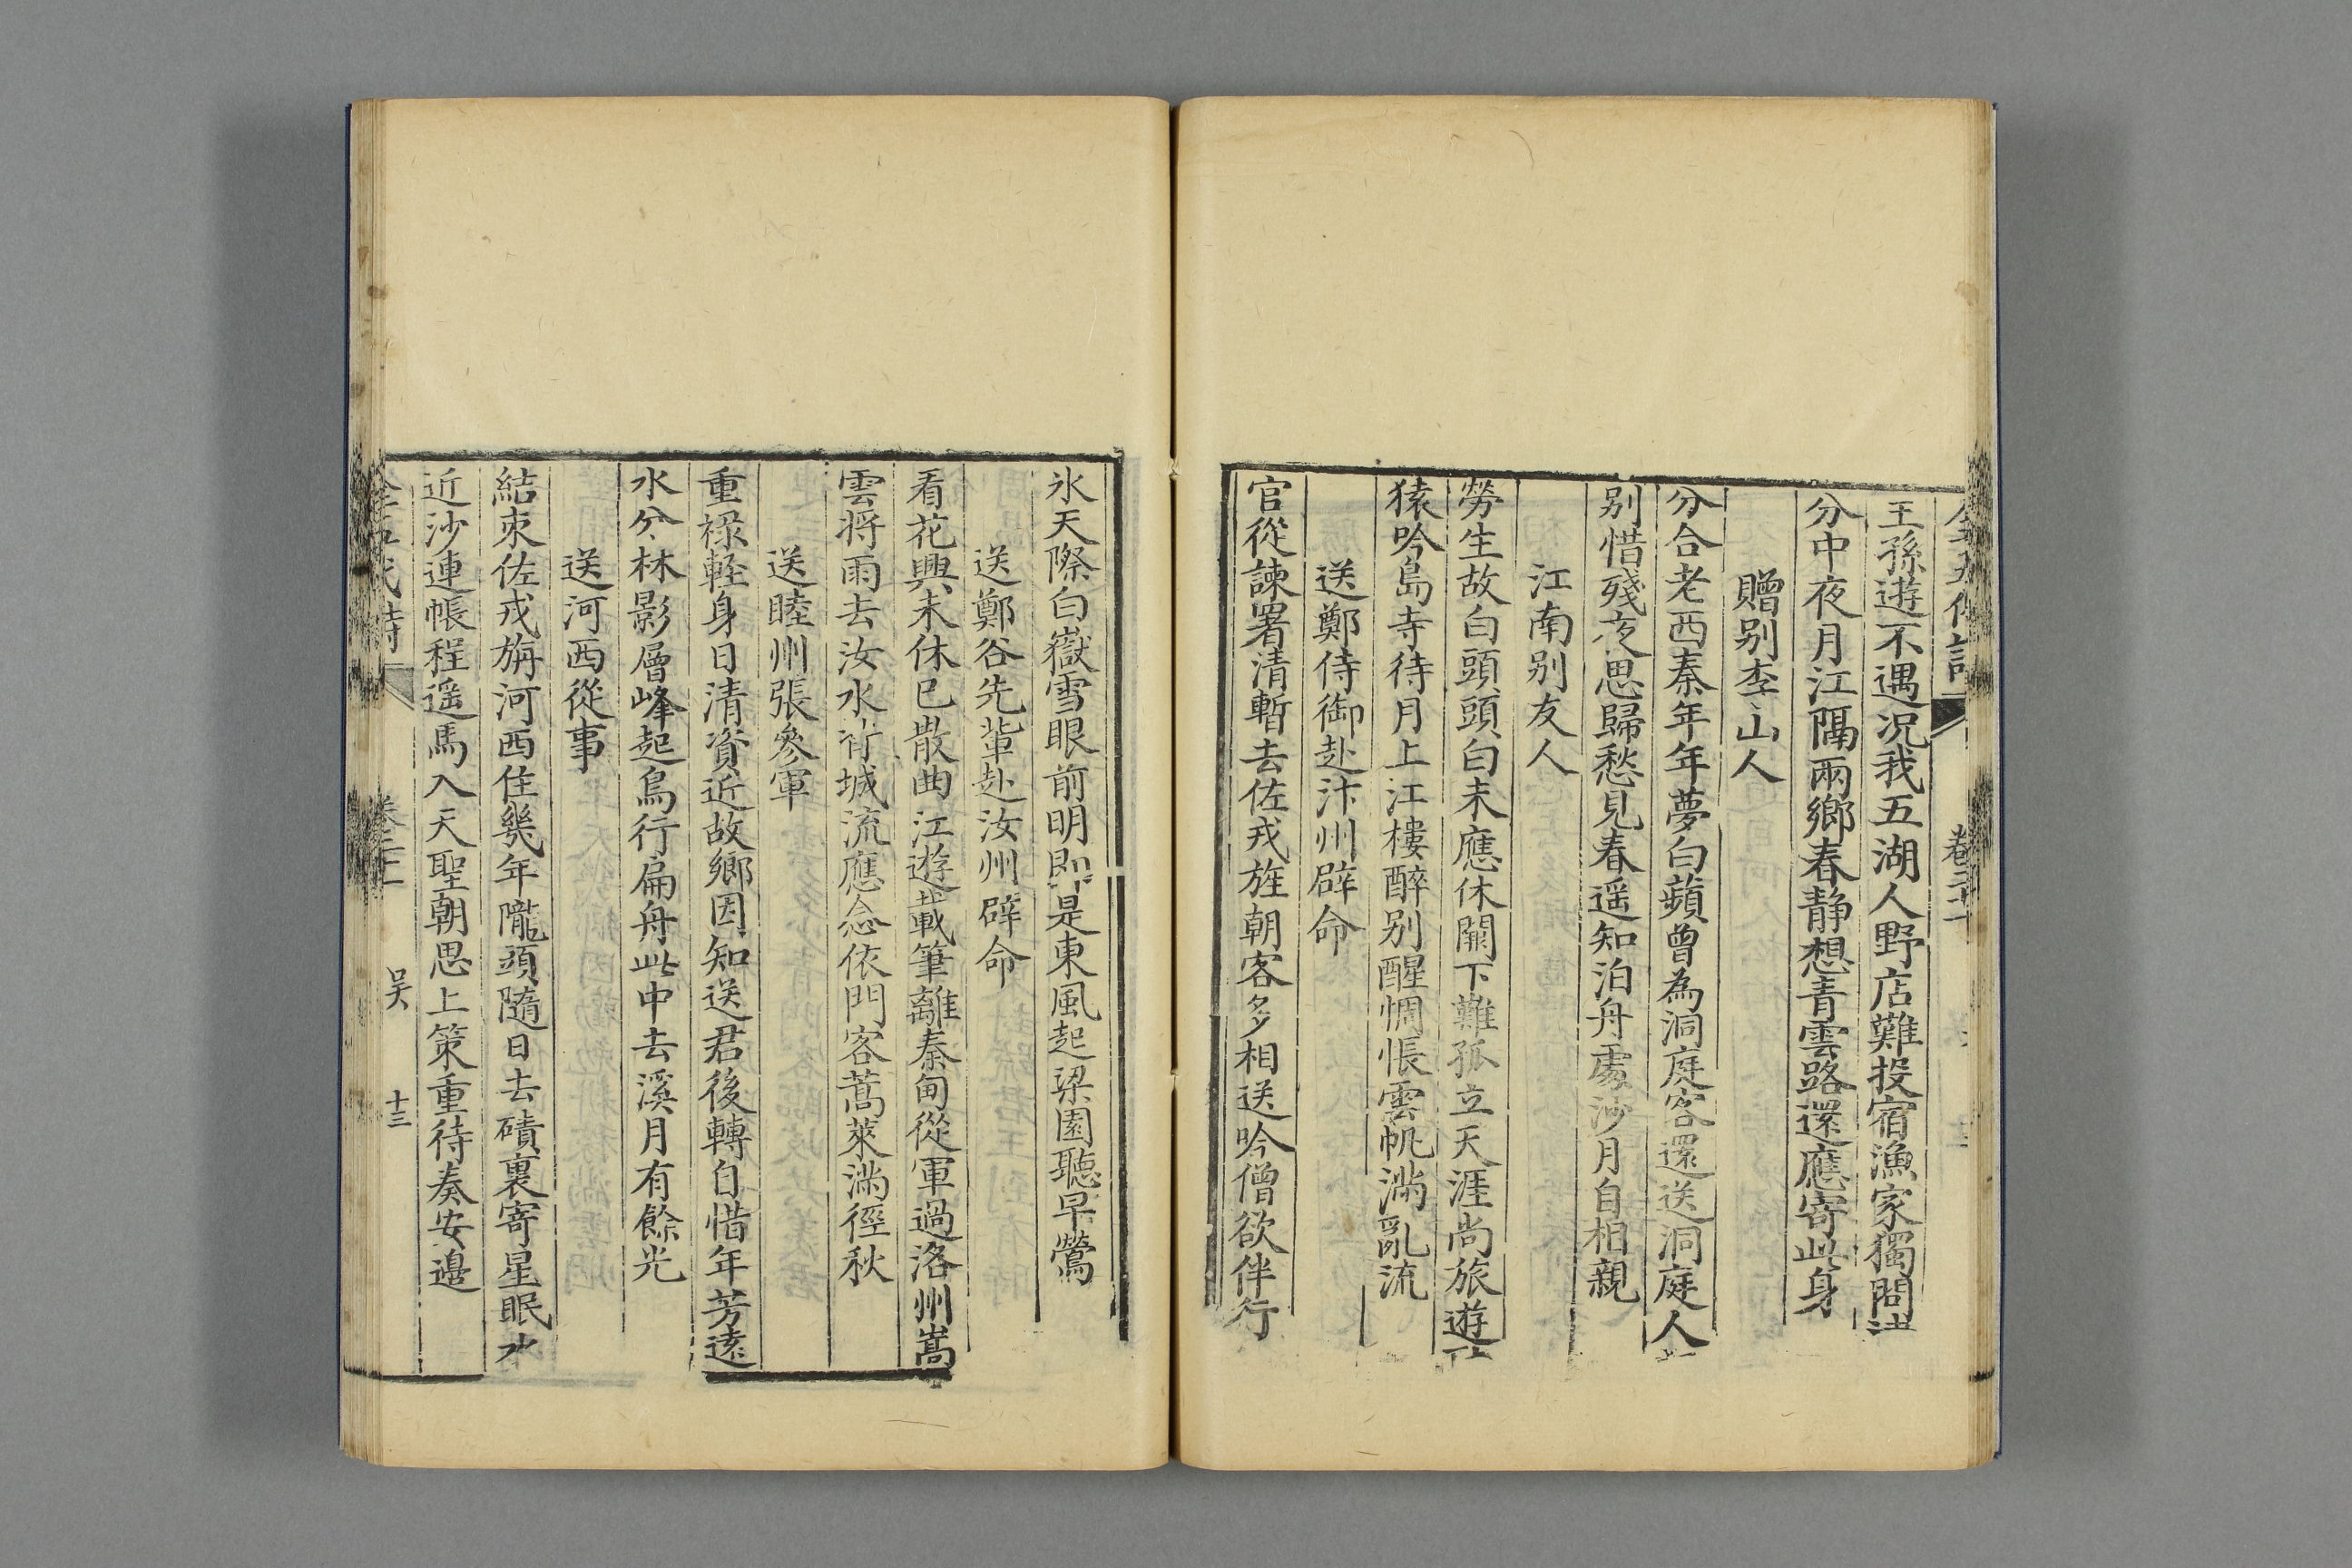 王孫遊不遇况我五湖人野店難投宿漁家獨問
分中夜月江隔兩鄉春静想青雲路還應寄此身
贈别李山人
分合老西秦年年夢白蘋曾為洞庭客還送洞庭人
别惜殘夜思歸愁見春遥知泊舟處沙月自相親
江南别友人
勞生故白頭頭白未應休闕下難孤立天涯尚旅遊
猿吟島寺待月上江樓醉别醒惆悵雲帆滿亂流
送鄭侍御赴汴州辟命
官從諫署清暫去佐戎旌朝客多相送吟僧欲伴行
氷天際白嶽雪眼前明即是東風起梁園聽早鶯
送鄭谷先輩赴汝州辟命
看花興未休已散曲江遊載筆離秦甸從軍過洛州嵩
雲将雨去汝水背城流應念依門客蒿萊滿徑秋
送睦州張參軍
重禄輕身日清資近故鄉因知送君後轉自惜年芳遠
水分林影層峰起鳥行扁舟此中去溪月有餘光
送河西從事
結束佐戎旃河西住幾年隴頭隨日去磧裏寄星眠水
近沙連帳程遥馬入天聖朝思上策重待奏安邊
全五代詩 卷 吴 十三